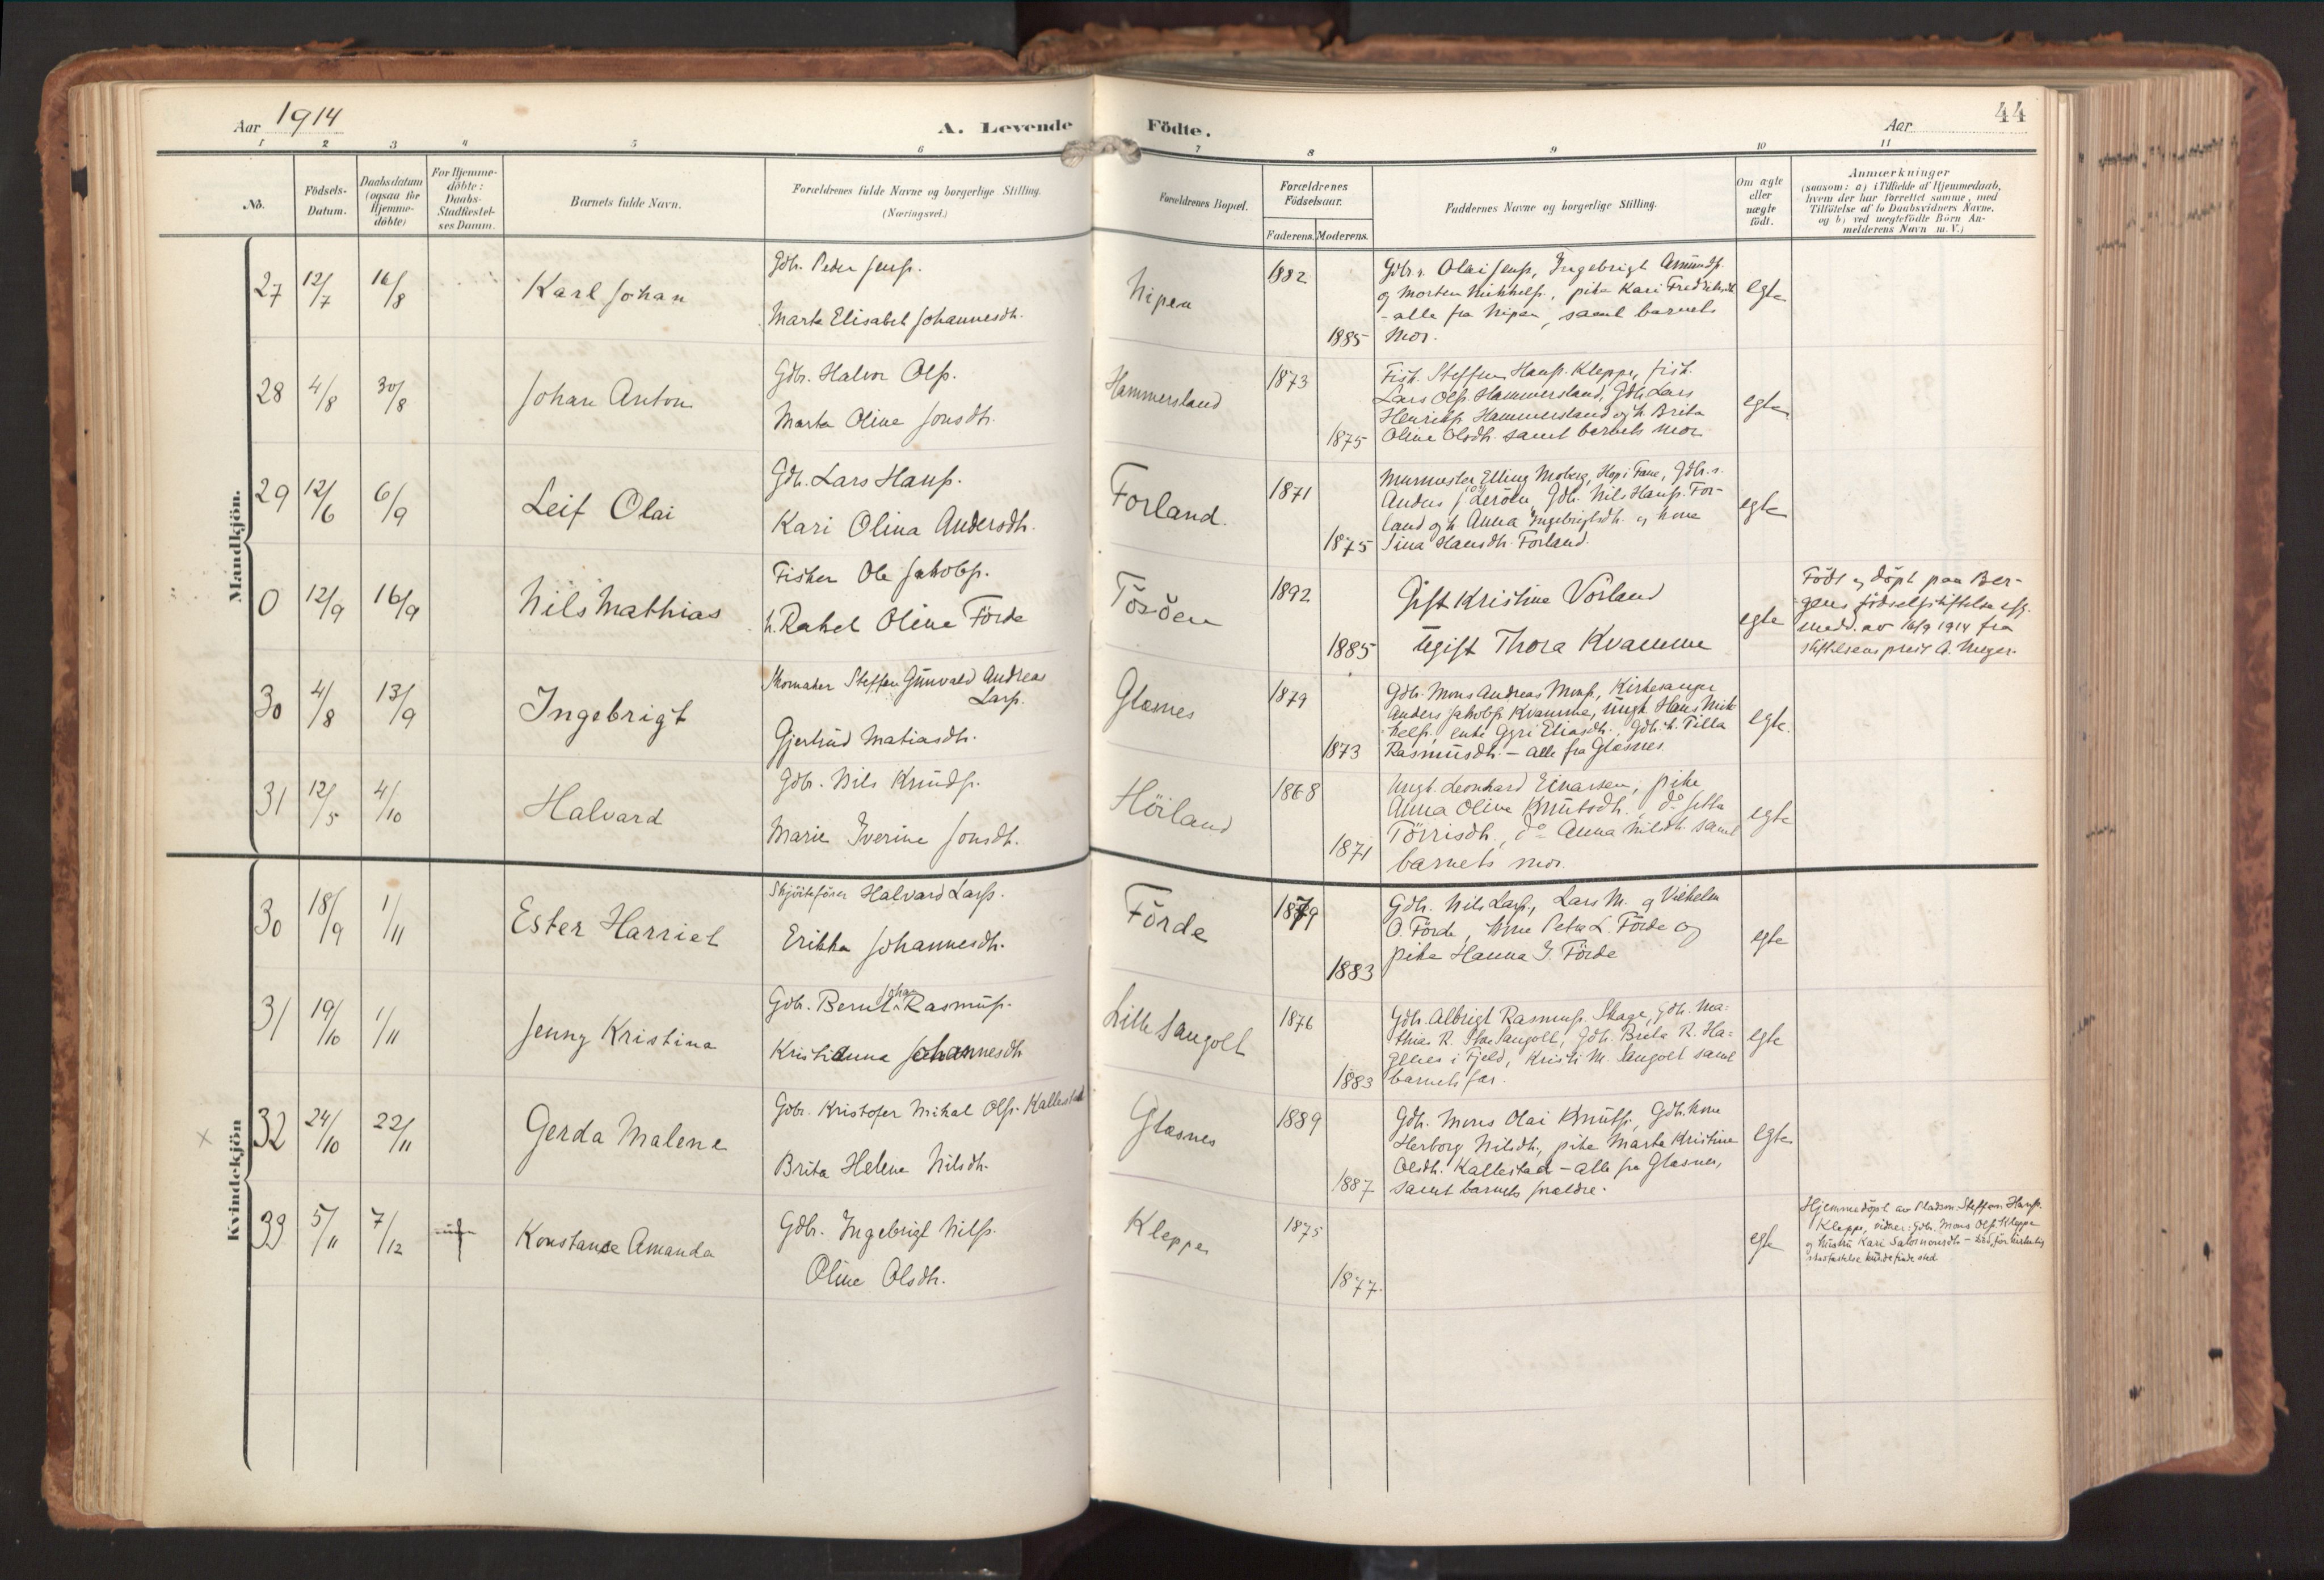 Aar 1914
A. Levende Födte.
Aar
44
1 2 3 4 5 6 7 8 9 10 11
No.
Födsels-
Datum.
Daabsdatum
(ogsaa for
Hjemme-
döbte)
For Hjemme-
döbte:
Daabs-
Stadfæstel-
ses Datum.
Barnets fulde Navn.
Forældrenes fulde Navne og borgerlige Stilling.
(Næringsvei.)
Forældrenes Bopæl.
Forældrenes
Födselsaar.
Faderens. Moderens.
Faddernes Navne og borgerlige Stilling.
Om ægte
eller
uægte
födt.
Anmærkninger
(saasom: a) i Tilfælde af Hjemmedaab,
hvem der har forrettet samme, med
Tilföielse af to Daabsvidners Navne,
og b) ved uægtefödte Börn An-
melderens Navn m. V.)
Mandkjön.
27 12/7 16/8 Karl Johan
Gdbr. Peder Jenss.
Marta Elisabet Johannesdtr.
Nipen 1882
1885
Gdbr.s. Olai Jenss, Ingebrigt Amunds.
og Morten Mikkels., pike Kari
- alle fra Nipen, samt barnets
mor.
egte
28 4/8 30/8 Johan Anton
Gdbr. Halvor Olss.
Marta Oline Jonsdtr.
Hammersland 1873
1875
Fisk. Steffen Hanss. Kleppe, fisk.
Lars Olss. Hammersland, Gdbr. Lars
Henrikss. Hammersland og h. Brita
Oline Olsdtr. samt barnets mor
egte
29 12/6 6/9 Leif Olai
Gdbr. Lars Hanss.
Kari Olina Andersdtr.
Forland. 1871
1875
Murmester Elling Moberg, Hop i Fane, Gdbr.s.
Anders J. Leröen, Gdbr. Nils Hanss. For-
land og h. Anna Ingebrigtsdtr. og kone
Sina Hansdtr. Forland.
egte
0 12/9 16/9 Nils Mathias
Fisker Ole Jakobss.
h. Rakel Oline Förde
Tösöen 1892
1885
Gift Kristine Vorland
Ugift Thora Kvamme
egte
Födt og döpt paa Ber-
gens födselsstiftelse efg.
medd. av 16/9 1914 fra
stiftelsens prest A. Unger.
30 4/8 13/9 Ingebrigt
Skomaker Steffen Gunvald Andreas
Larss.
Gjertrud Matiasdtr.
Glæsnes 1879
1873
Gdbr. Mons Andreas Monss., Kirkesanger
Anders Jakobss Kvamme, ungk Hans Mik-
kels., enke Gyri Eliasdtr., Gdbr.h. Tilla
Rasmusdtr. - alle fra Glæsnes.
egte.
31 12/5 4/10 Halvard
Gdbr. Nils Knuds.
Marie Iverine Jonsdtr.
Höiland 1868
1871
Ungk. Leonhard Einarsen, pike
Anna Olina Knutsdtr., do
Törrisdtr., do Anna Nilsdtr. samt
barnets mor.
egte
Kvindekjön
30 18/9 1/11 Ester Harriet
Skjöitefører Halvard Larss.
Erikka Johannesdtr.
Förde 1879
1883
Gdbr. Nils Larss., Lars M. og Vilhelm
O. Förde, kone Petra L. Förde og
pike Hanna J. Förde
egte
31 19/10 1/11 Jenny Kristina
Gdbr. Bernt Johan Rasmuss.
Kristianna Johannesdtr
Lille Sangolt 1876
1883
Gdbr. Albrigt Rasmuss. Skage, Gdbr. Ma-
thias R. Store Sangolt, Gdbr. Brita R. Ha-
genes i Fjeld, Kristi M. Sangolt samt
barnets far.
egte
x 32 24/10 22/11 Gerda Malene
Gdbr. Kristofer Mikal Olss. Kallestad
Brita Helene Nilsdtr.
Glæsnes 1889
1887
Gdbr. Mons Olai Knutss., Gdbr. kone
Herborg Nilsdtr., pike Marta Kristine
Olsdtr. Kallestad - alle fra Glæsnes,
samt barnets forældre.
egte
33 5/11 7/12 Konstanse Amanda
Gdbr. Ingebrigt Nilss.
Oline Olsdtr.
Kleppe 1875
1877.
egte
Hjemmedöpt av Steffen Hanss.
Kleppe, vidner: Gdbr. Mons Olss Kleppe
og hustru Kari Salomonsdtr - död för kirkelig
stadfæstelse kunde finde sted